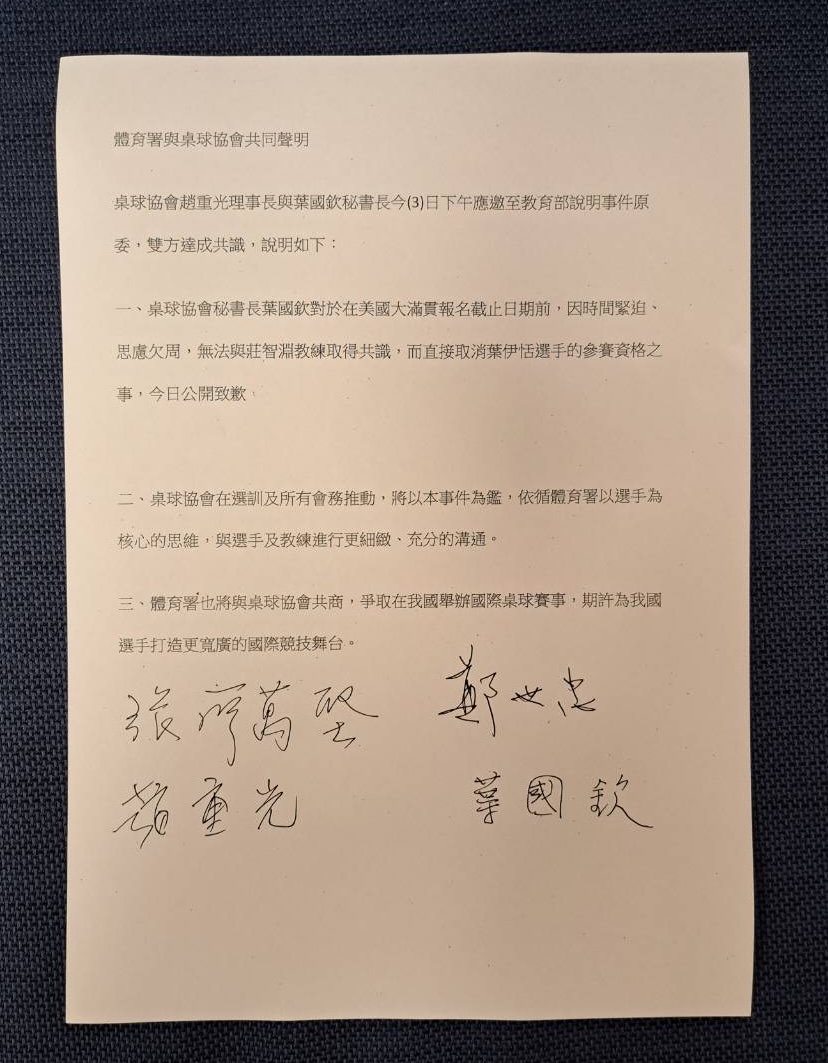 體育署與桌球協會共同聲明
桌球協會趙重光理事長與葉國欽秘書長今(3)日下午應邀至教育部說明事件原
委，雙方達成共識，說明如下：
一、桌球協會秘書長葉國欽對於在美國大滿貫報名截止日期前，因時間緊迫、
思慮欠周，無法與莊智淵教練取得共識，而直接取消葉伊恬選手的參賽資格之
事，今日公開致歉。
二、桌球協會在選訓及所有會務推動，將以本事件為鑑，依循體育署以選手為
核心的思維，與選手及教練進行更細緻、充分的溝通。
三、體育署也將與桌球協會共商，爭取在我國舉辦國際桌球賽事，期許為我國
選手打造更寬廣的國際競技舞台。
張廖萬堅 鄭世忠
趙重光 葉國欽